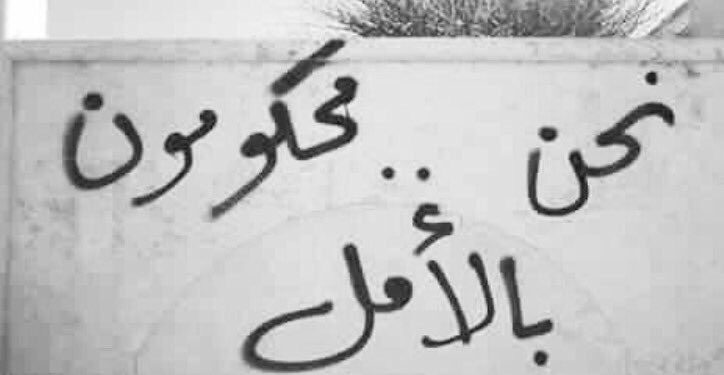 نحن .. محكومون
بالأمل